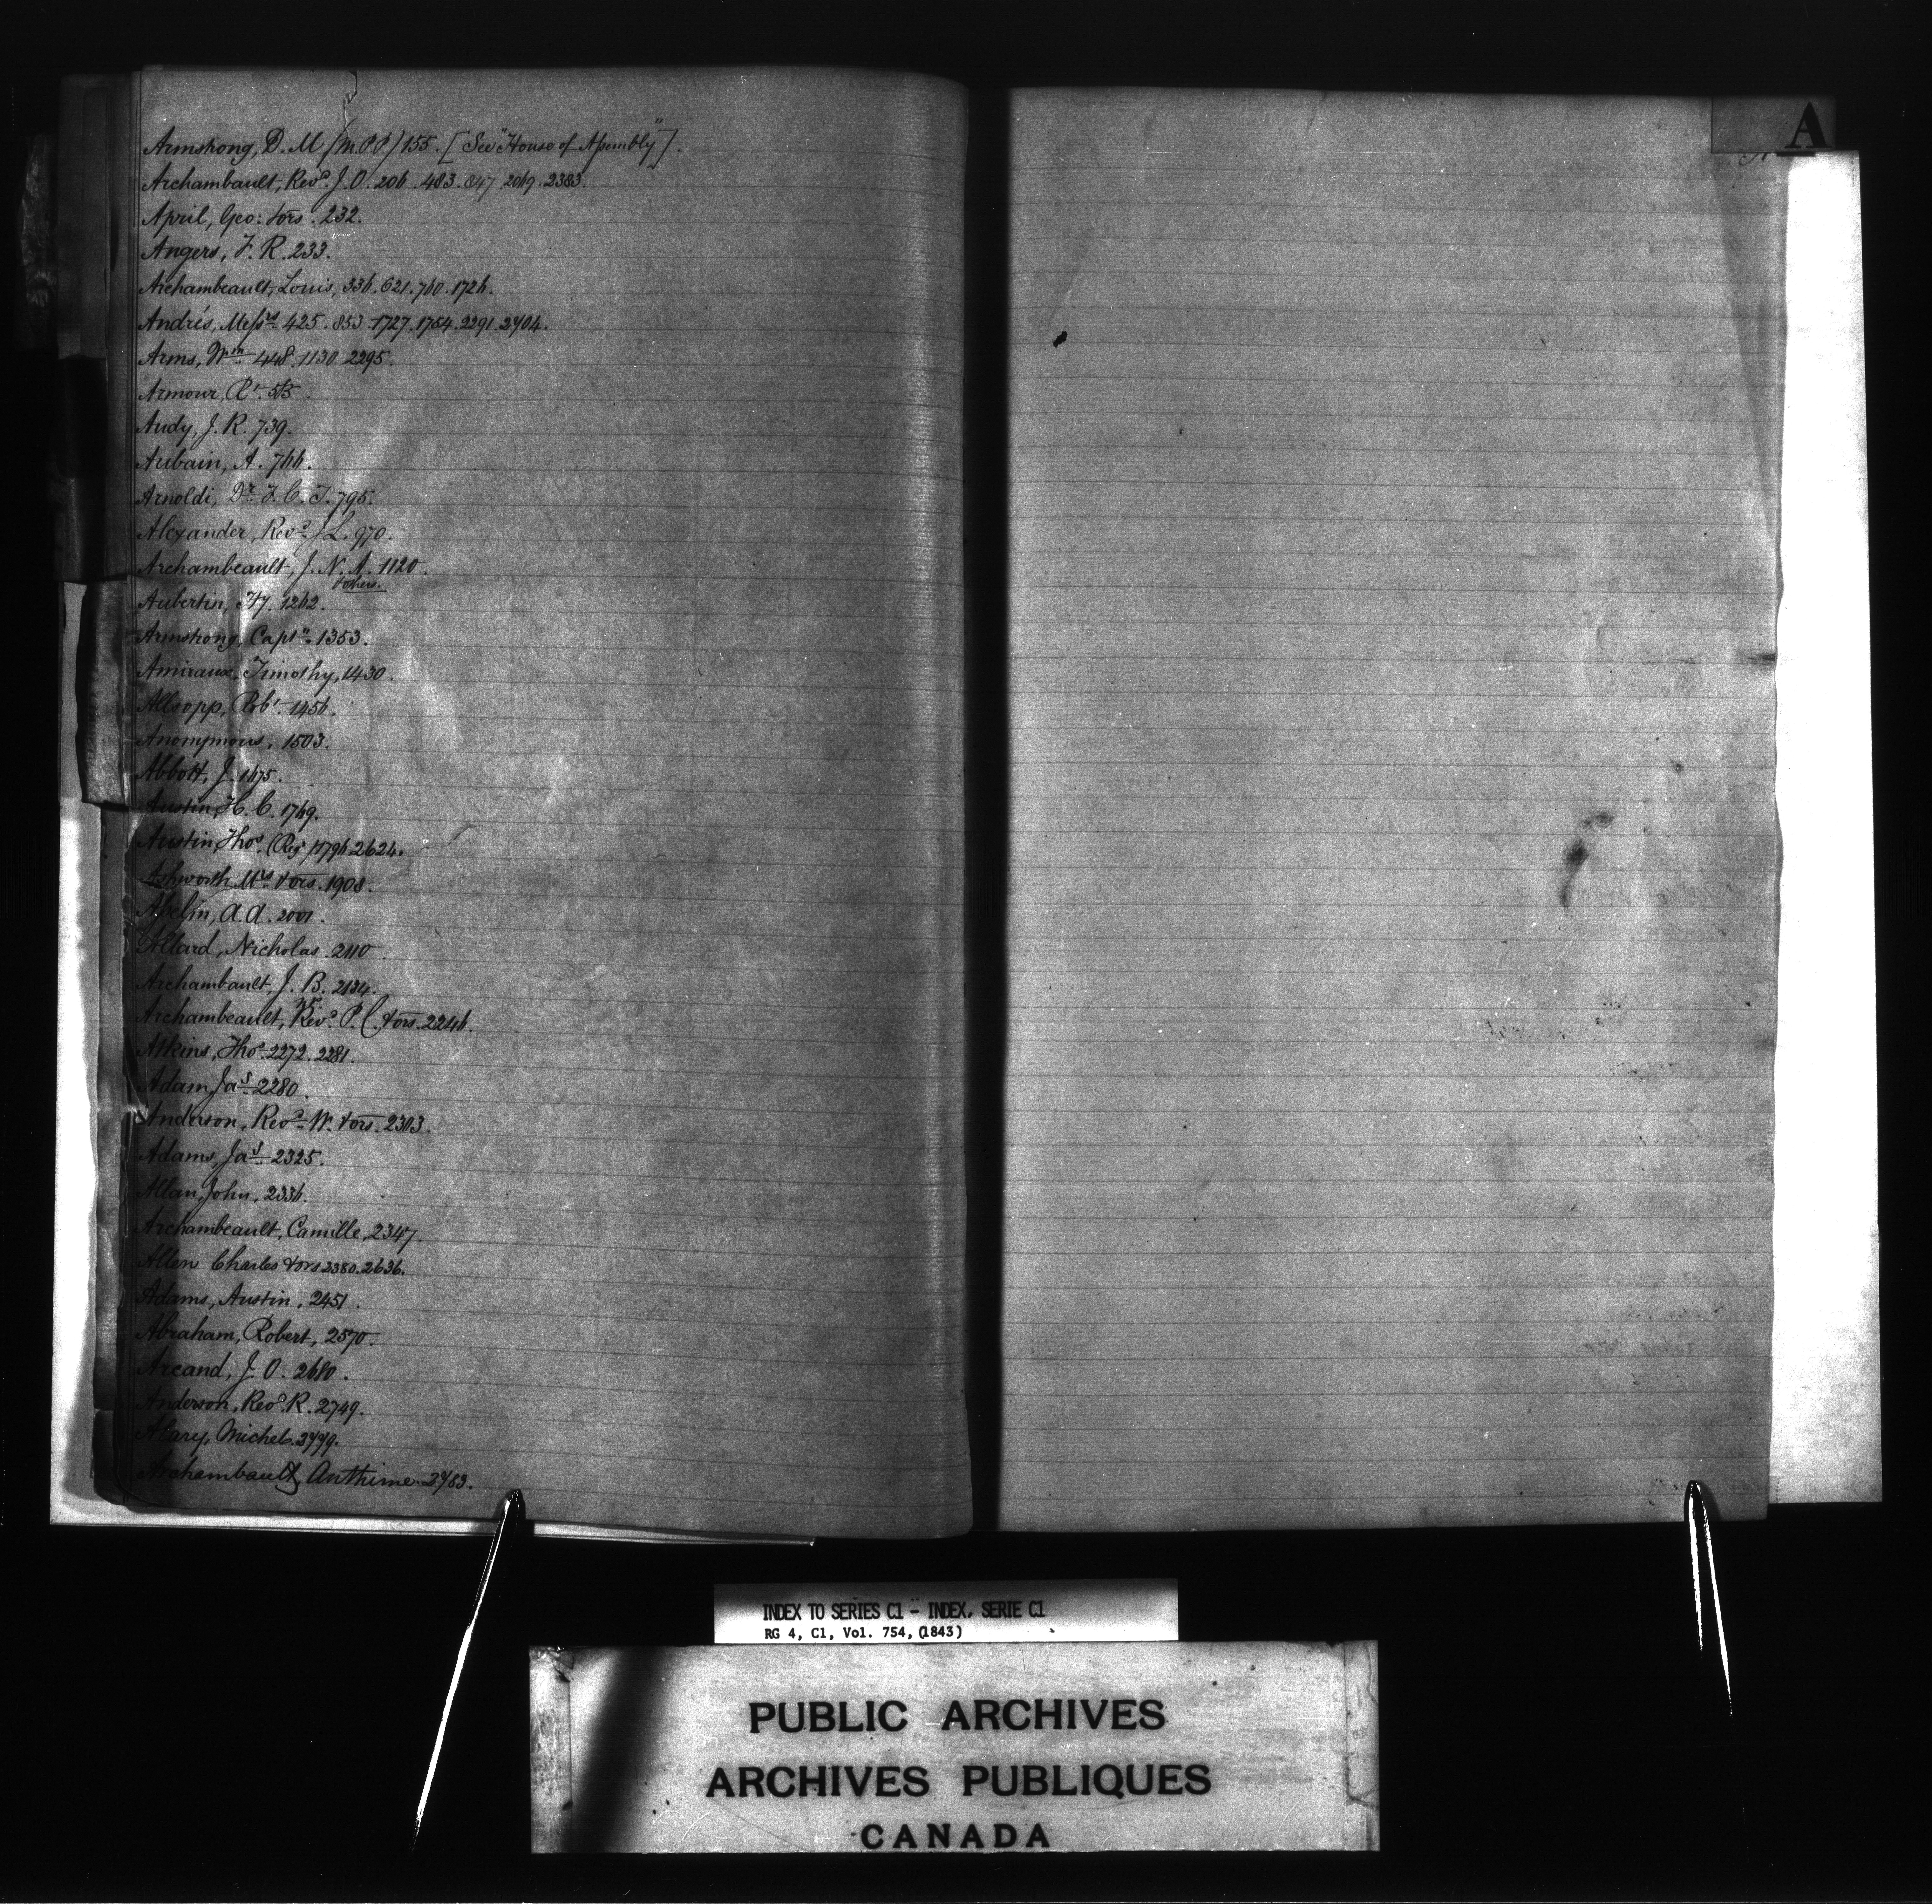 A
Armstrong, D. M (M.P.P) 155. [See "House of Assembly"].
Archambault, Revd. J. O. 206. 483. 847. 2069. 2383.
April, Geo: & ors. 232.
Angers, F. R. 233.
Archambeault, Louis, 336. 621. 760. 1726.
Andrés, Messrs. 425. 853. 1727. 1754. 2291. 2704.
Arms, Wm. 448. 1130. 2295.
Armour, Rt.
Audy, J. R. 739.
Aubain, A. 766.
Arnoldi, Dr. F. C. T. 795.
Alexander, Revd. J. L. 970.
Archambeault, J. N. A. 1120.
& others.
Aubertin, Hy. 1262.
Armstrong, Captn. 1353.
Amiraux, Timothy, 1430.
Allsopp, Robt. 1456.
Anonymous, 1503.
Abbott, J. 1675.
Austin, H. C. 1769.
Austin, Thos. (Regr) 1796. 2624.
Ashworth, Mrs. & ors. 1908.
Abelin, A. A. 2001.
Allard, Nicholas. 2110
Archambault, J. B. 2134.
Archambeault, Revd. P. & ors. 2246.
Atkins, Thos. 2272. 2281.
Adam, Jas. 2280.
Anderson, Revd. W. & ors. 2303.
Adams, Jas. 2325.
Allan, John, 2336.
Archambeault, Camille, 2347.
Allen Charles & ors 2380. 2636.
Adams, Austin, 2451.
Abraham, Robert, 2570.
Arcand, J. O. 2680.
Anderson, Revd. R. 2749.
Alary, Michel. 2779.
Archambault, Anthime 2783.
INDEX TO SERIES C1 - INDEX, SERIE C1
RG 4, C1, Vol. 754, (1843)
PUBLIC ARCHIVES
ARCHIVES PUBLIQUES
CANADA